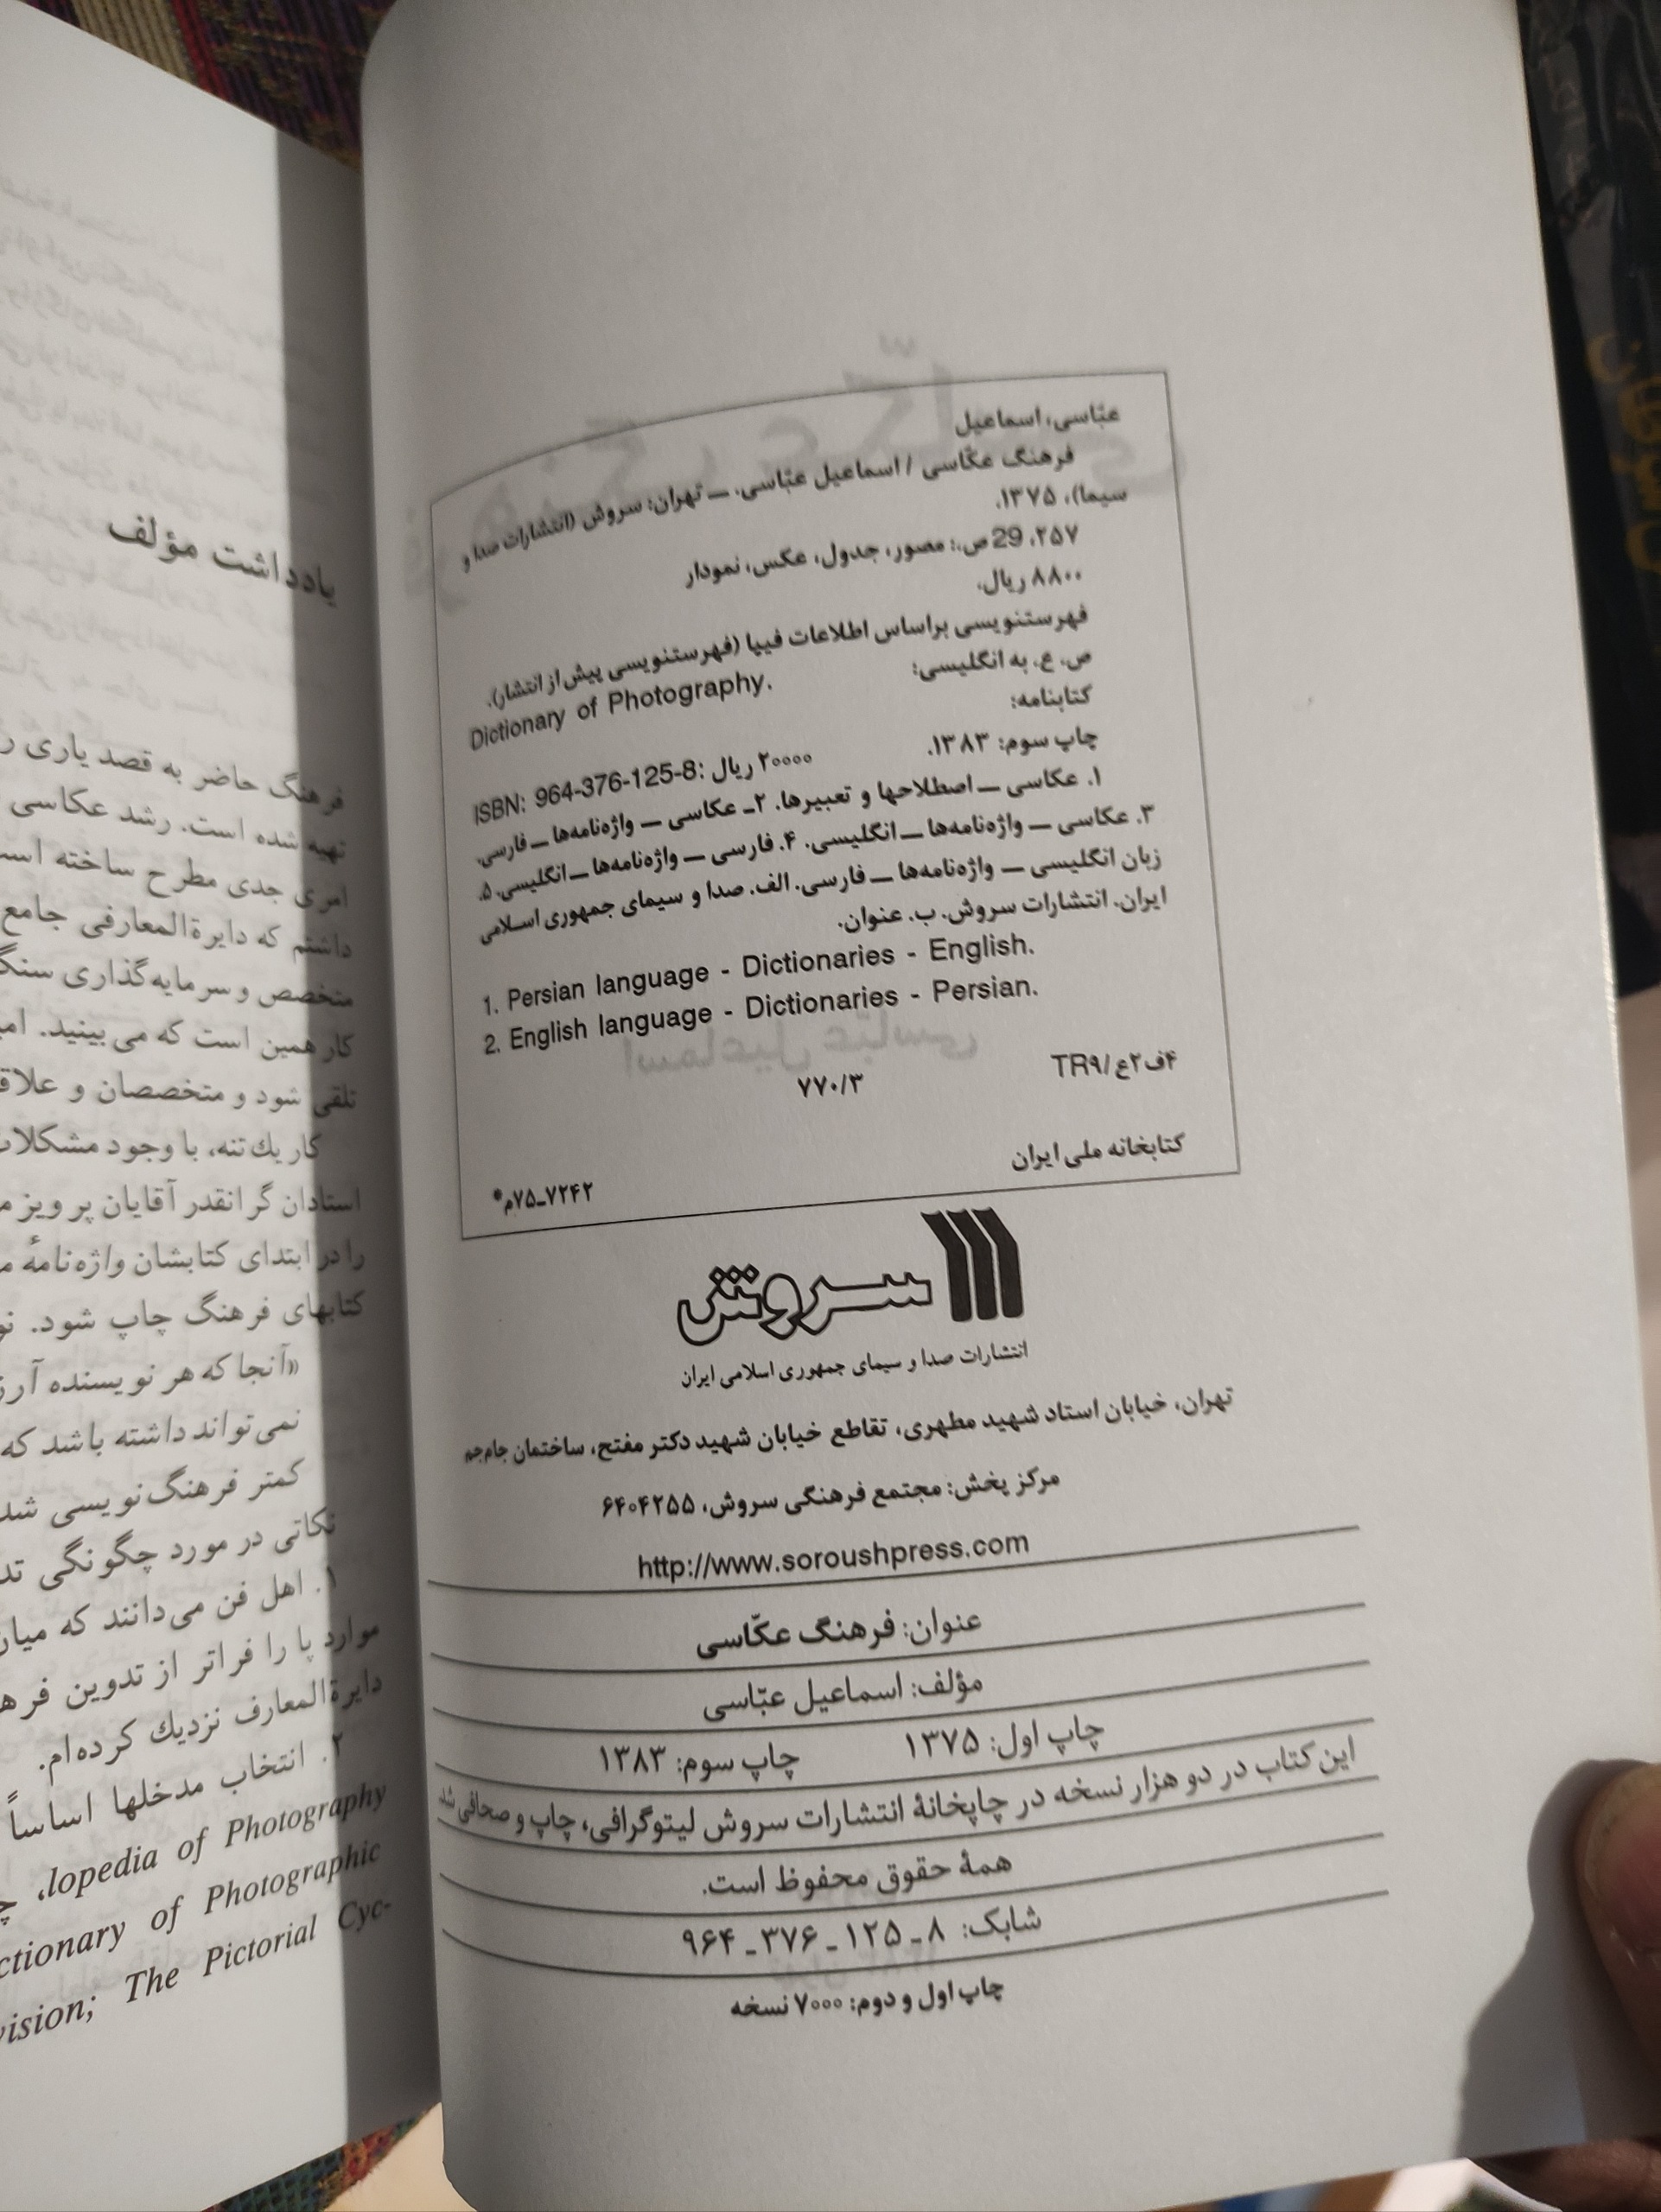 عبّاسی، اسماعیل
فرهنگ عکّاسی / اسماعیل عبّاسی. ــ تهران: سروش (انتشارات صدا و
سیما)، ۱۳۷۵.
۲۵۷، 29 ص.: مصور، جدول، عکس، نمودار
۸۸۰۰ ریال.
فهرستنویسی براساس اطلاعات فیپا (فهرستنویسی پیش از انتشار).
ص. ع. به انگلیسی: Dictionary of Photography.
کتابنامه:
چاپ سوم: ۱۳۸۳. ۲۰۰۰۰ ریال :ISBN: 964-376-125-8
۱. عکاسی ــ اصطلاحها و تعبیرها. ۲ـ عکاسی ــ واژه‌نامه‌ها ــ فارسی.
۳. عکاسی ــ واژه‌نامه‌ها ــ انگلیسی. ۴. فارسی ــ واژه‌نامه‌ها ــ انگلیسی. ۵.
زبان انگلیسی ــ واژه‌نامه‌ها ــ فارسی. الف. صدا و سیمای جمهوری اسلامی
ایران. انتشارات سروش. ب. عنوان.
1. Persian language - Dictionaries - English.
2. English language - Dictionaries - Persian.
۴ف۲ع/TR۹ ۷۷۰/۳
کتابخانه ملی ایران
۷۲۴۲ـ۷۵م*
سروش
انتشارات صدا و سیمای جمهوری اسلامی ایران
تهران، خیابان استاد شهید مطهری، تقاطع خیابان شهید دکتر مفتح، ساختمان جام‌جم
مرکز پخش: مجتمع فرهنگی سروش، ۶۴۰۴۲۵۵
http://www.soroushpress.com
عنوان: فرهنگ عکّاسی
مؤلف: اسماعیل عبّاسی
چاپ اول: ۱۳۷۵ چاپ سوم: ۱۳۸۳
این کتاب در دو هزار نسخه در چاپخانهٔ انتشارات سروش لیتوگرافی، چاپ و صحافی شد.
همهٔ حقوق محفوظ است.
شابک: ۸ ـ ۱۲۵ ـ ۳۷۶ ـ ۹۶۴
چاپ اول و دوم: ۷۰۰۰ نسخه
یادداشت مؤلف
فرهنگ حاضر به قصد یاری
تهیه شده است. رشد عکاسی
امری جدی مطرح ساخته است
داشتم که دایرةالمعارفی جامع
متخصص و سرمایه‌گذاری
کار همین است که می‌بینید.
تلقی شود و متخصصان و
کار یك‌تنه، با وجود
استادان گرانقدر آقایان پرویز
را در ابتدای کتابشان واژه‌نامهٔ
کتابهای فرهنگ چاپ شود.
«آنجا که هر نویسنده
نمی‌تواند داشته باشد که
کمتر فرهنگ‌نویسی
نکاتی در مورد چگونگی
۱. اهل فن می‌دانند که
موارد پا را فراتر از تدوین
دایرةالمعارف نزدیك کرده‌ام.
۲. انتخاب مدخلها اساساً
lopedia of Photography،
ctionary of Photographic
vision; The Pictorial Cyc-